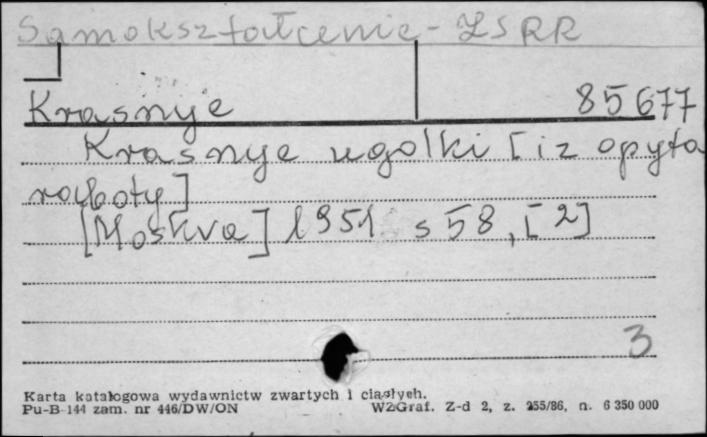 Samokształcenie - ZSRR
Krasnye 85677
Krasnye ugolki [iz opyta
raboty]
[Moskva] 1951 s 58, [2]
3
Karta katalogowa wydawnictw zwartych i ciągłych.
Pu-B-144 zam. nr 446/DW/ON WZGraf. Z-d 2, z. 255/86, n. 6 350 000